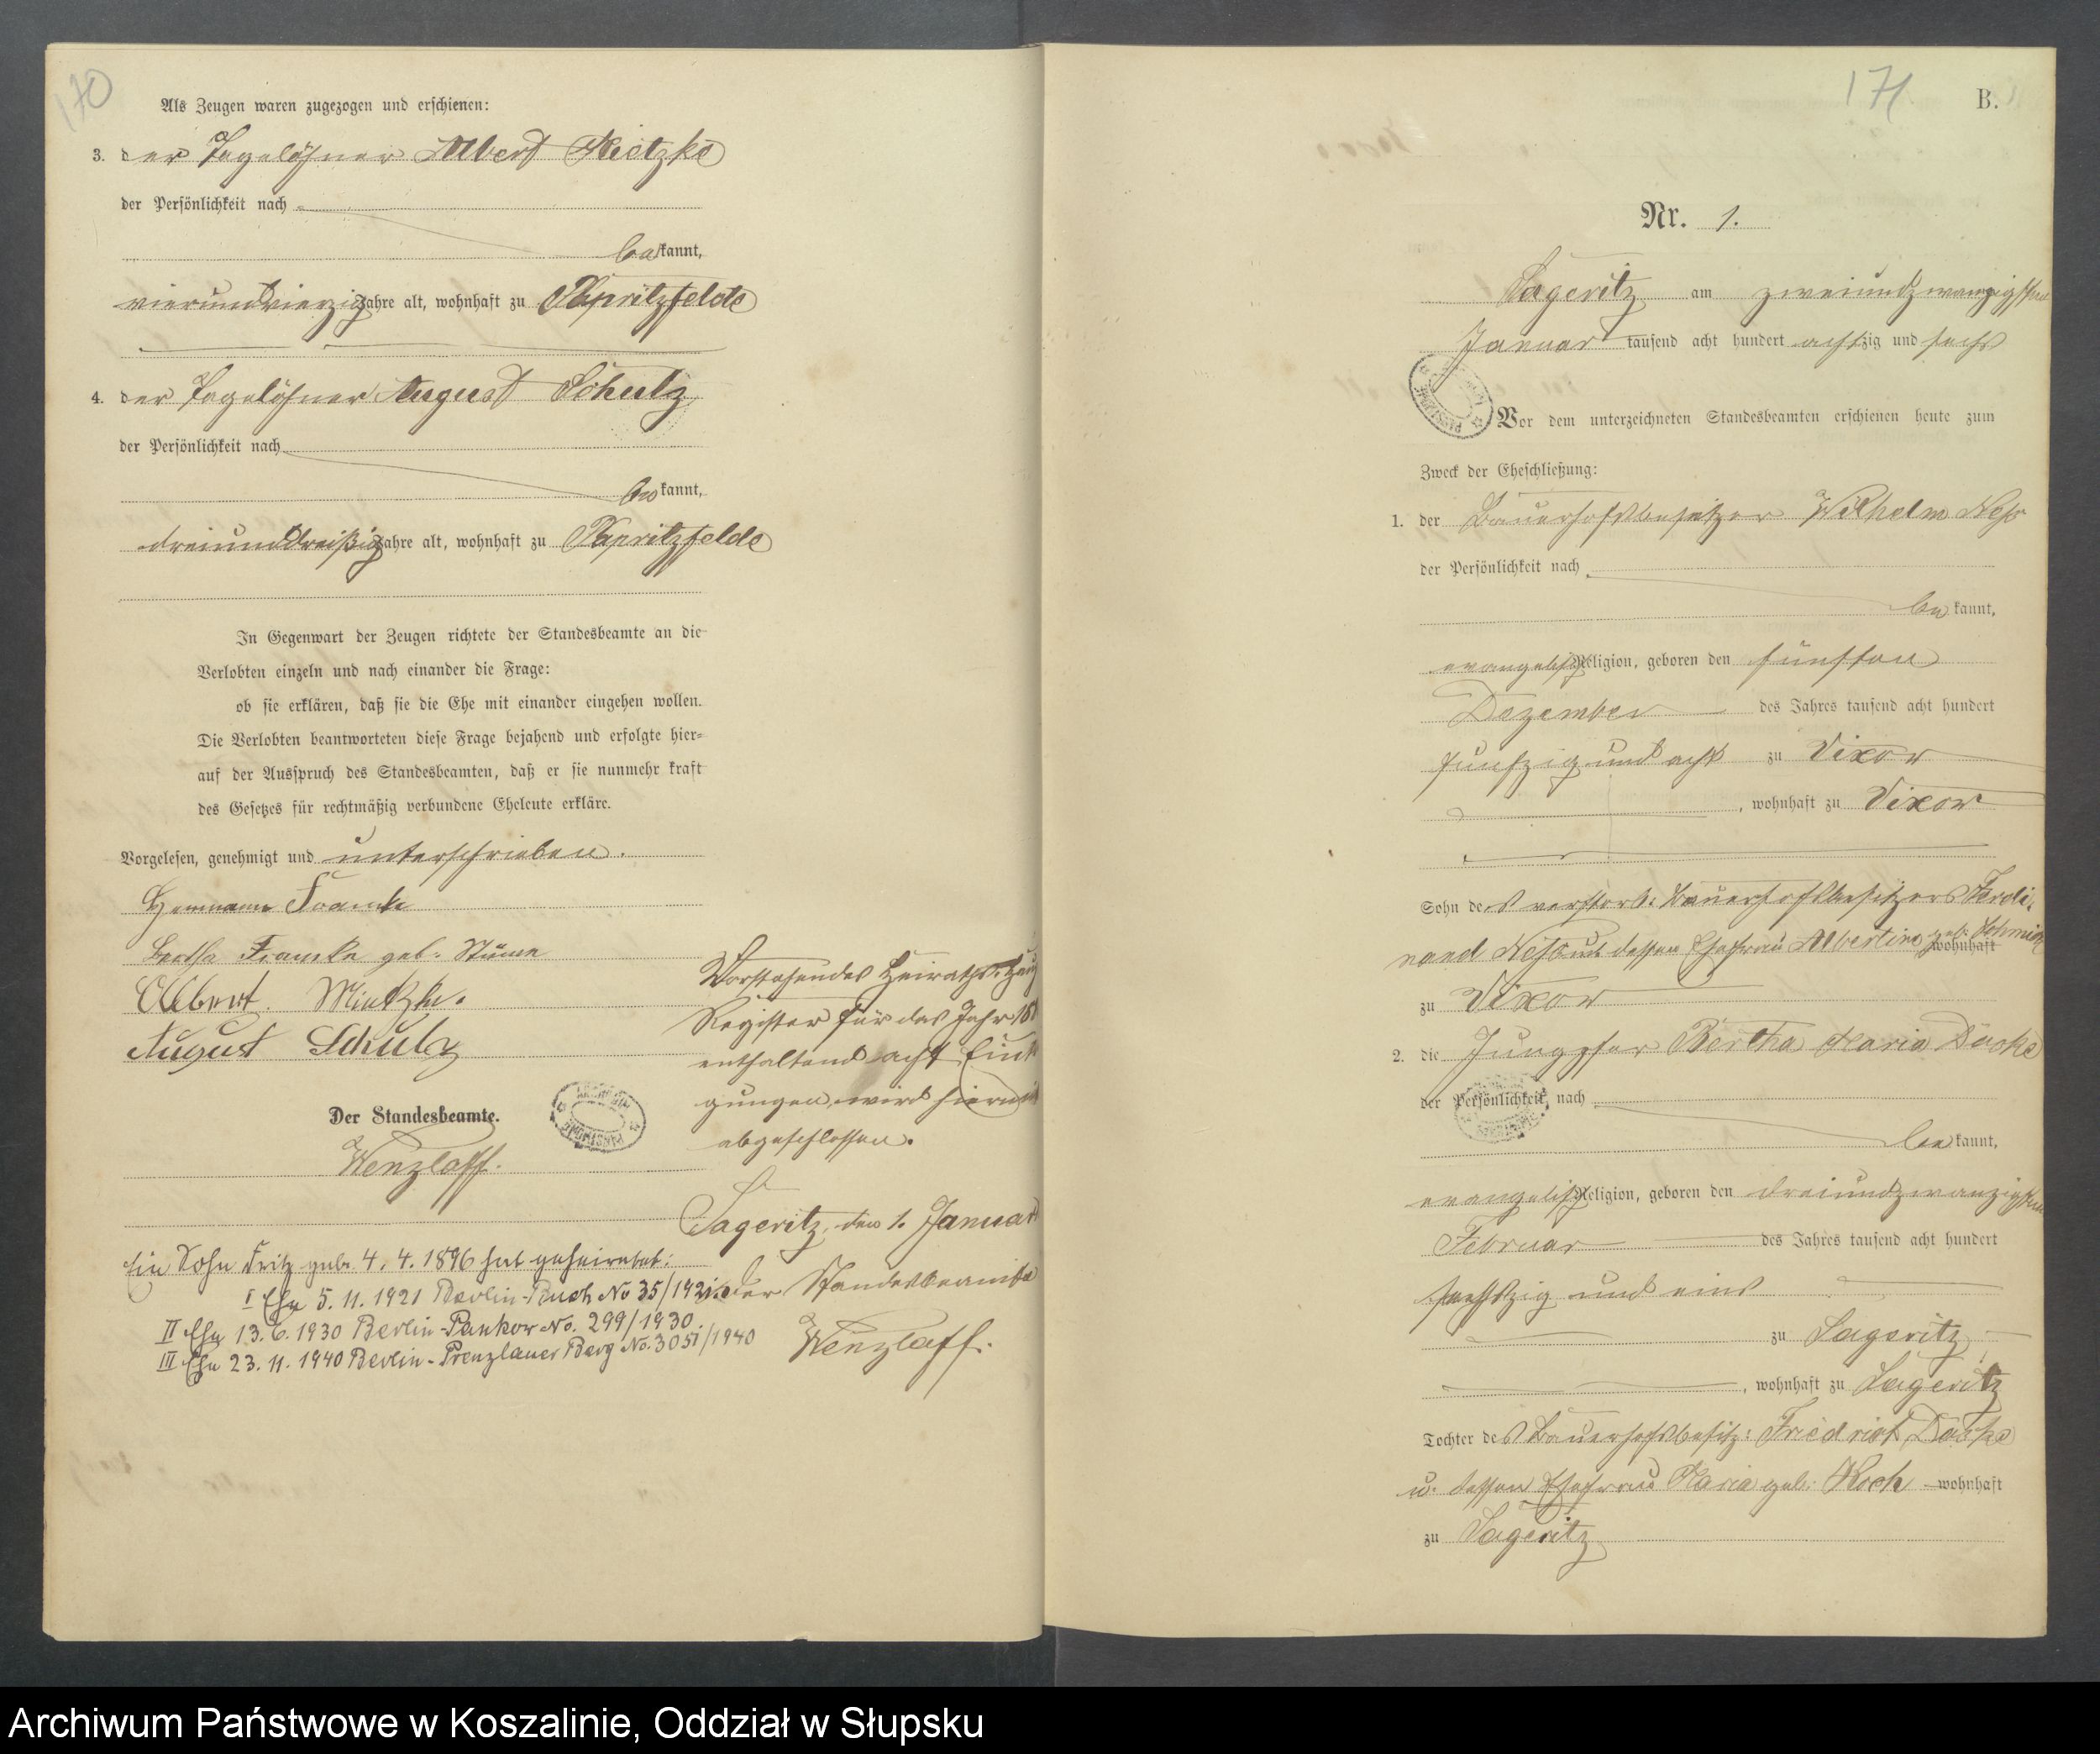 170
Als Zeugen waren zugezogen und erschienen:
3. der Tagelöhner Albert Mietzke
der Persönlichkeit nach
bekannt,
vierundvierzig Jahre alt, wohnhaft zu Papritzfelde
4. der Tagelöhner August Schulz
der Persönlichkeit nach
bekannt,
dreiunddreißig Jahre alt, wohnhaft zu Papritzfelde
In Gegenwart der Zeugen richtete der Standesbeamte an die
Verlobten einzeln und nach einander die Frage:
ob sie erklären, daß sie die Ehe mit einander eingehen wollen.
Die Verlobten beantworteten diese Frage bejahend und erfolgte hier-
auf der Ausspruch des Standesbeamten, daß er sie nunmehr kraft
des Gesetzes für rechtmäßig verbundene Eheleute erkläre.
Vorgelesen, genehmigt und unterschrieben.
Hermann Framke
Bertha Framke geb.
Albert Mietzke.
August Schulz
Der Standesbeamte.
Wenzlaff.
Vorstehendes Heiraths-
Register für das Jahr
enthaltend acht
gungen, wird hiermit
abgeschlossen.
Sageritz, den 1. Januar
Der Standesbeamte
Wenzlaff.
Ein Sohn Fritz geb. 4. 4. 1896 hat geheiratet:
I Ehe 5. 11. 1921 Berlin-Buch No 35/1921
II Ehe 13. 6. 1930 Berlin-Pankow No. 299/1930.
III Ehe 23. 11. 1940 Berlin-Prenzlauer Berg No. 3051/1940
171
B.
Nr. 1.
Sageritz am zweiundzwanzigsten
Januar tausend acht hundert achtzig und sechs
Vor dem unterzeichneten Standesbeamten erschienen heute zum
Zweck der Eheschließung:
1. der Bauerhofsbesitzer Wilhelm
der Persönlichkeit nach
bekannt,
evangelisch Religion, geboren den fünften
Dezember des Jahres tausend acht hundert
fünfzig und acht zu Vixow
, wohnhaft zu Vixow
Sohn des verstorb. Bauerhofsbesitzers Ferdi-
nand und dessen Ehefrau Albertine geb. Schmidt wohnhaft
zu Vixow
2. die Jungfer Bertha Maria Dücke
der Persönlichkeit nach
bekannt,
evangelisch Religion, geboren den dreiundzwanzigsten
Februar des Jahres tausend acht hundert
sechszig und eins
zu Sageritz
, wohnhaft zu Sageritz
Tochter des Bauerhofsbesitz: Friedrich
u. dessen Ehefrau Maria geb. Koch wohnhaft
zu Sageritz
Archiwum Państwowe w Koszalinie, Oddział w Słupsku